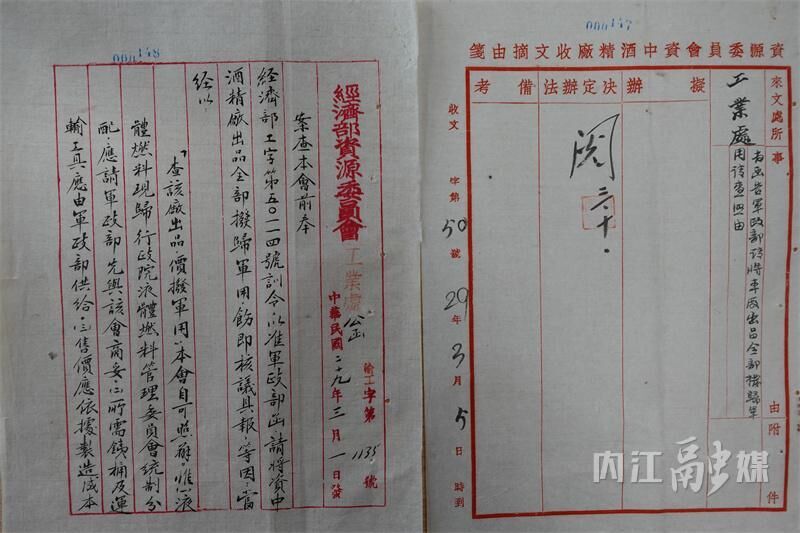 000147
資源委員會資中酒精廠收文摘由箋
來文處所
工業處
事
為函告軍政部請將本廠出品全部撥歸軍
用請查照由
由
附
件
擬辦
決定辦法
備考
閱
三、十、
收文 字第 50 號 29 年 3 月 5 日 時到
000148
經濟部資源委員會 工業處 公函
渝工字第 1135 號
中華民國二十九年三月一日發
案查本會前奉
經濟部工字第五〇一一四號訓令，以准軍政部函請將資中
酒精廠出品全部撥歸軍用，飭即核議具報，等因，當
經以：
「查該廠出品價撥軍用，本會自可照辦，惟(一)液
體燃料現歸行政院液體燃料管理委員會統制分
配，應請軍政部先與該會商妥。(二)所需鐵桶及運
輸工具應由軍政部供給。(三)售價應依據製造成本
内江融媒